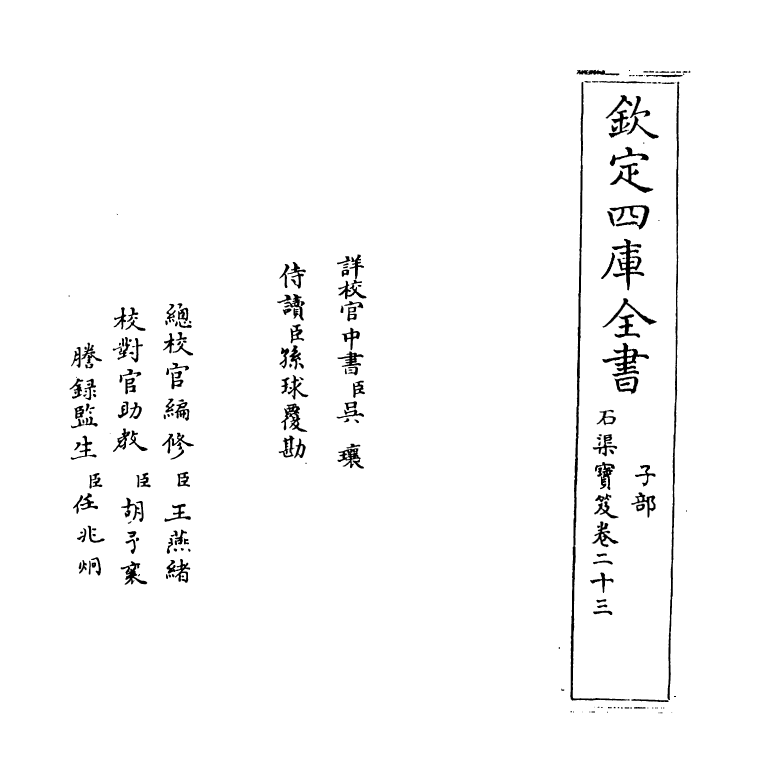 欽定四庫全書
子部
石渠寶笈卷二十三
詳校官中書臣吳瓖
侍讀臣孫球覆勘
總校官編修臣王燕緒
校對官助教臣胡予襄
謄錄監生臣任兆炯